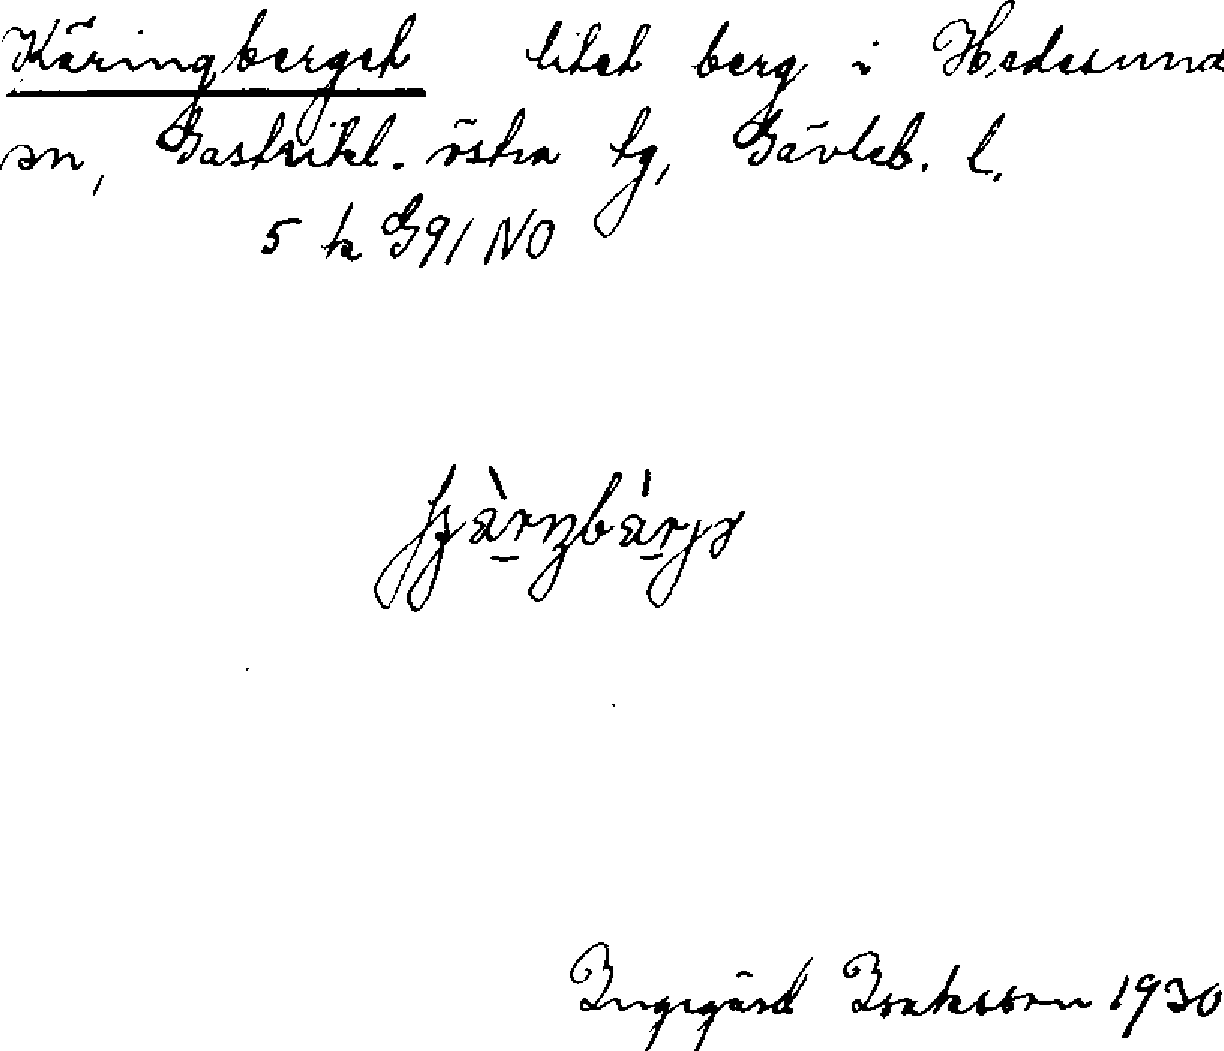 Käringberget litet berg i Hedesunda
sn, Gästrikl. östra tg, Gävleb. l.
5 k G91 NO
Ingegärd Isaksson 1930